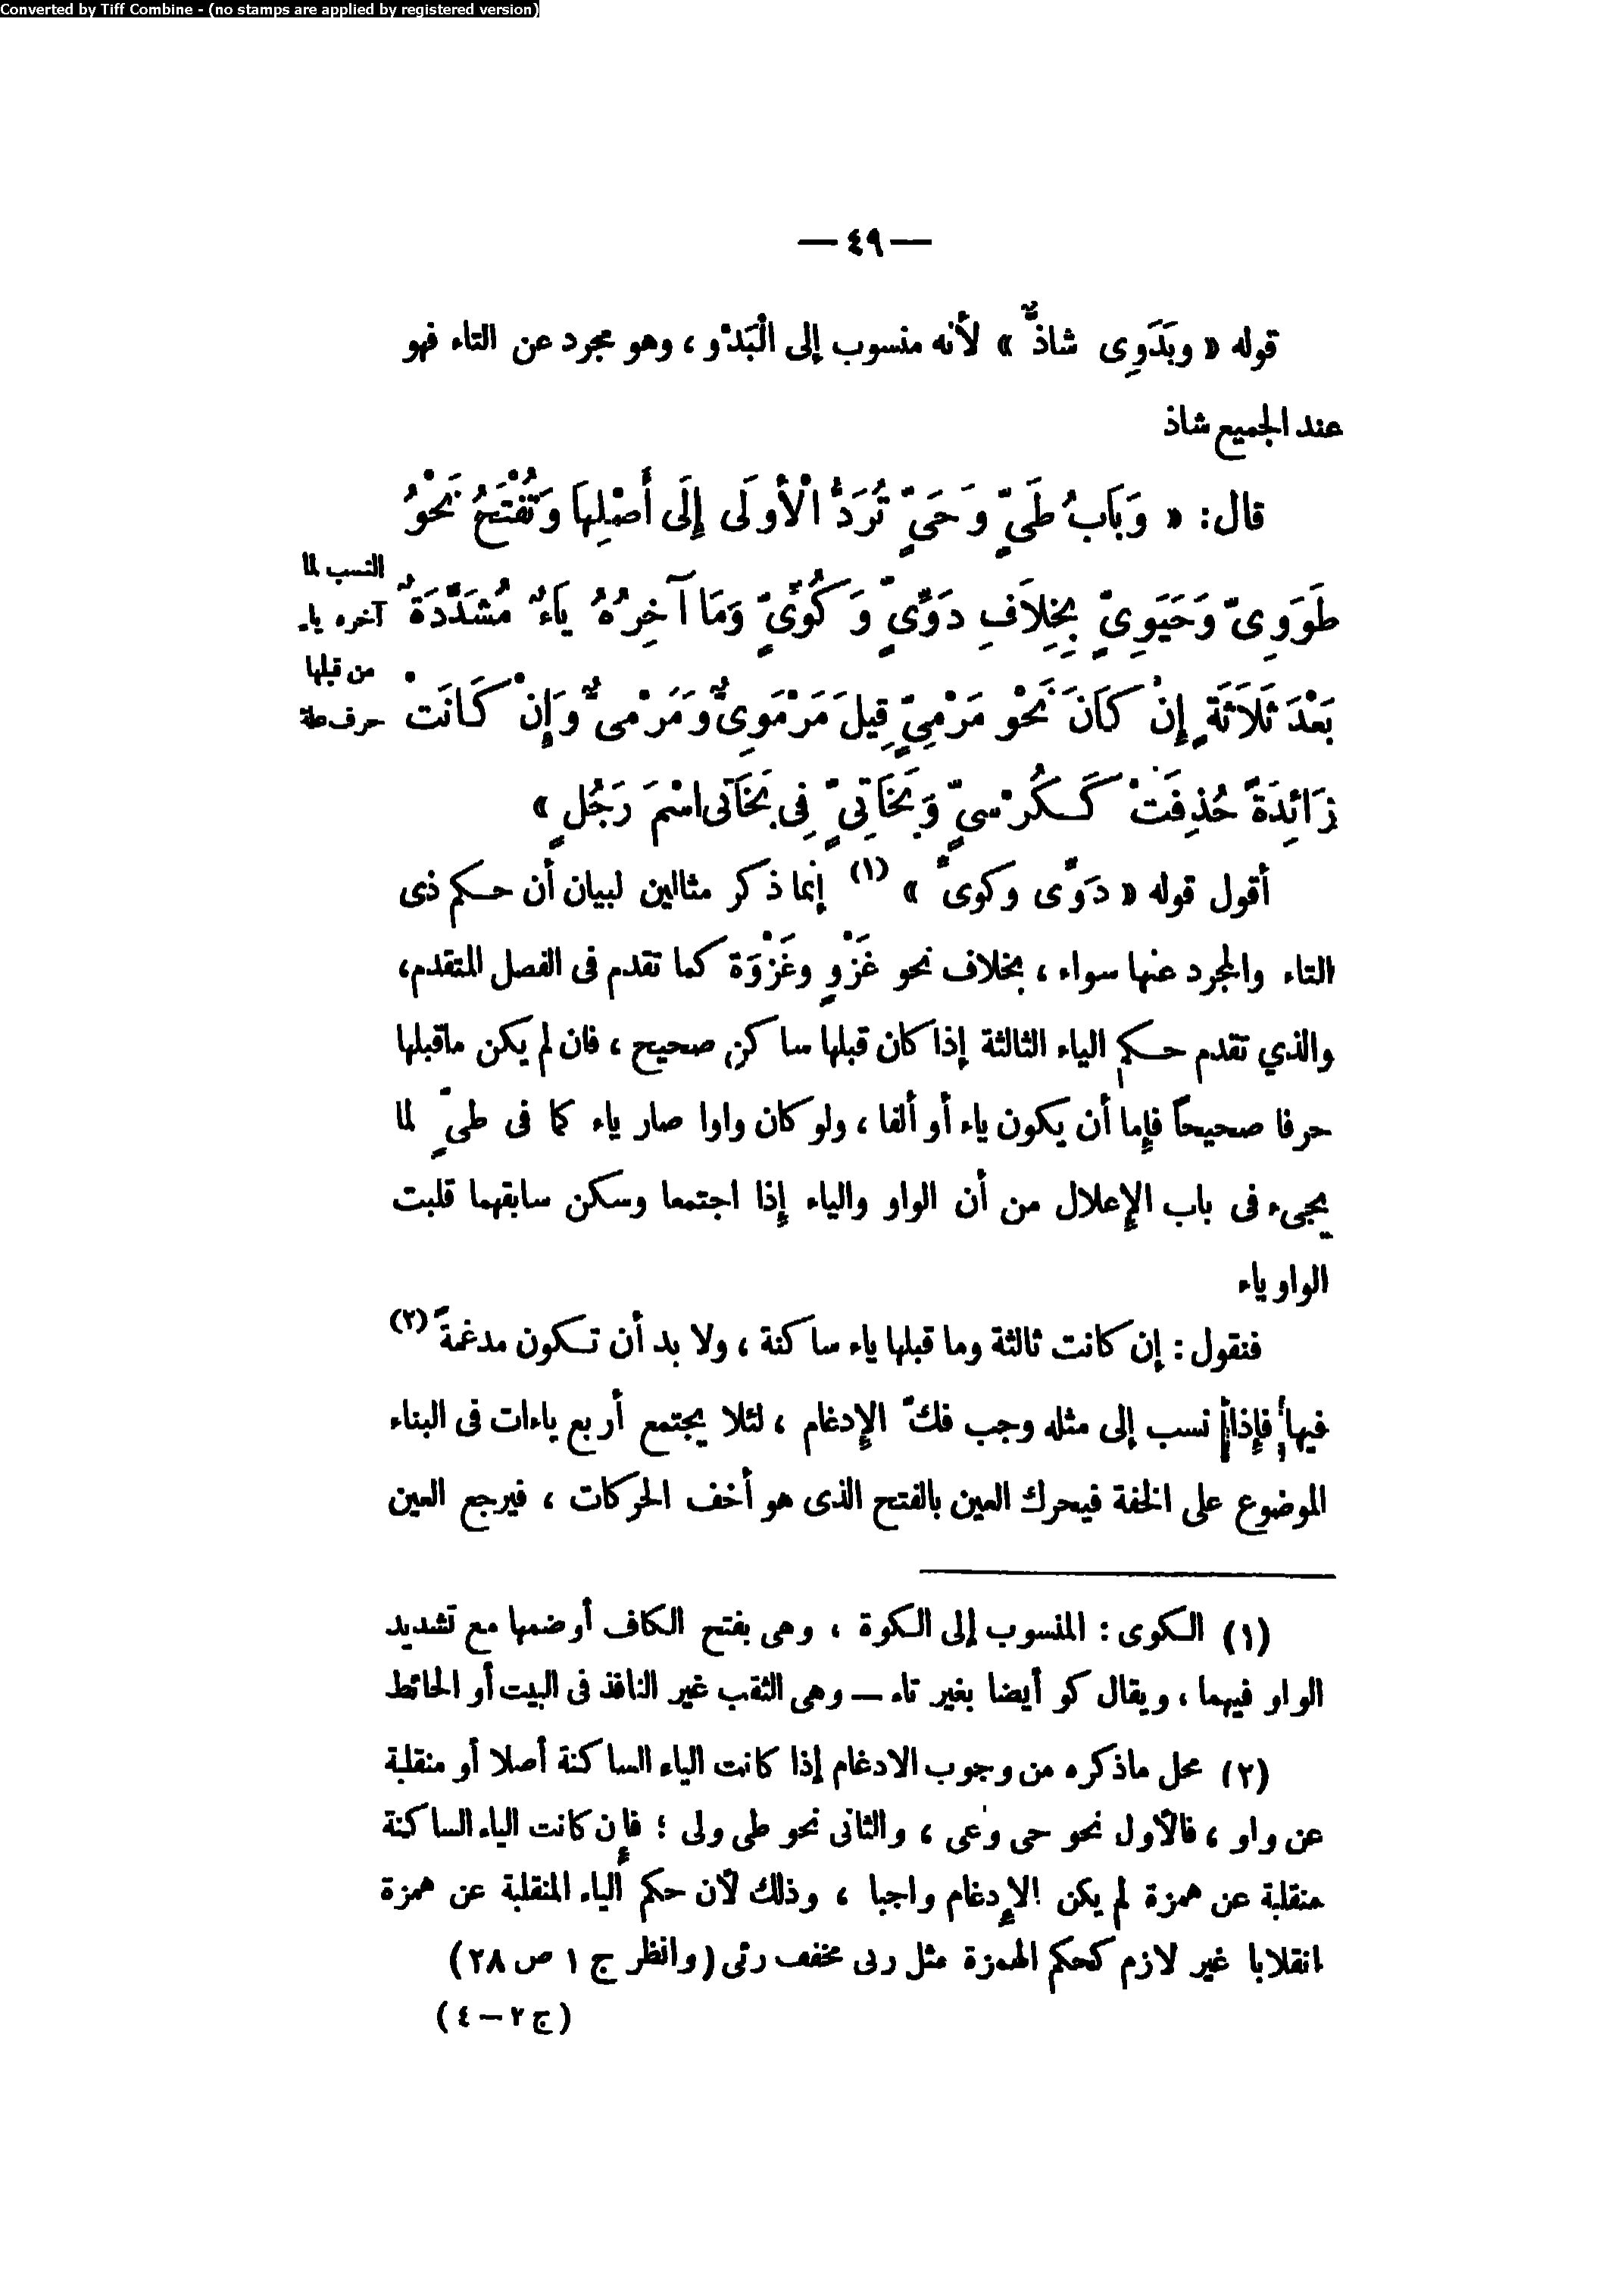 Converted by Tiff Combine - (no stamps are applied by registered version)
— ٤٩ —
قوله « وبَدَوِى شاذٌّ » لأنه منسوب إلى الْبَدْو ، وهو مجرد عن التاء فهو
عند الجميع شاذ
قال: « وَبَابُ طَيٍّ وَحَيٍّ تُرَدُّ الْأُولَى إِلَى أَصْلِهَا وَتُفْتَحُ نَحْوُ
النسب لما
طَوَوِىٍّ وَحَيَوِىٍّ بِخِلَافِ دَوِّىٍّ وَكُوِّىٍّ وَمَا آخِرُهُ يَاءٌ مُشَدَّدَةٌ
آخره ياء
من قبلها
بَعْدَ ثَلَاثَةٍ إِنْ كَانَ نَحْوَ مَرْمِىٍّ قِيلَ مَرْمَوِىٌّ وَمَرْمِىٌّ وَإِنْ كَانَتْ
حرف علة
زَائِدَةً حُذِفَتْ كَكُرْسِىٍّ وَبَخَاتِىٍّ فِى بَخَاتِى اسْمَ رَجُلٍ »
أقول قوله « دَوِّى وكوى » (١) إنما ذكر مثالين لبيان أن حكم ذى
التاء والمجرد عنها سواء ، بخلاف نحو غَزْوٍ وغَزْوَة كما تقدم فى الفصل المتقدم،
والذي تقدم حكم الياء الثالثة إذا كان قبلها ساكن صحيح ، فان لم يكن ماقبلها
حرفا صحيحاً فإما أن يكون ياء أو ألفا ، ولو كان واوا صار ياء كما فى طىٍّ لما
يجىء فى باب الإعلال من أن الواو والياء إذا اجتمعا وسكن سابقهما قلبت
الواو ياء
فنقول : إن كانت ثالثة وما قبلها ياء ساكنة ، ولا بد أن تكون مدغمةً (٢)
فيها فإذا نسب إلى مثله وجب فكّ الإدغام ، لئلا يجتمع أربع ياءات فى البناء
الموضوع على الخفة فيحرك العين بالفتح الذى هو أخف الحركات ، فيرجع العين
(١) الكوى : المنسوب إلى الكوة ، وهى بفتح الكاف أو ضمها مع تشديد
الواو فيهما ، ويقال كو أيضا بغير تاء — وهى الثقب غير النافذ فى البيت أو الحائط
(٢) محل ماذكره من وجوب الادغام إذا كانت الياء الساكنة أصلا أو منقلبة
عن واو ، فالأول نحو حى وعى ، والثانى نحو طى ولى ؛ فإن كانت الياء الساكنة
منقلبة عن همزة لم يكن الإدغام واجبا ، وذلك لأن حكم الياء المنقلبة عن همزة
انقلابا غير لازم كحكم الهمزة مثل ربى مخفف رئى (وانظر ج ١ ص ٢٨)
(ج ٢ – ٤)